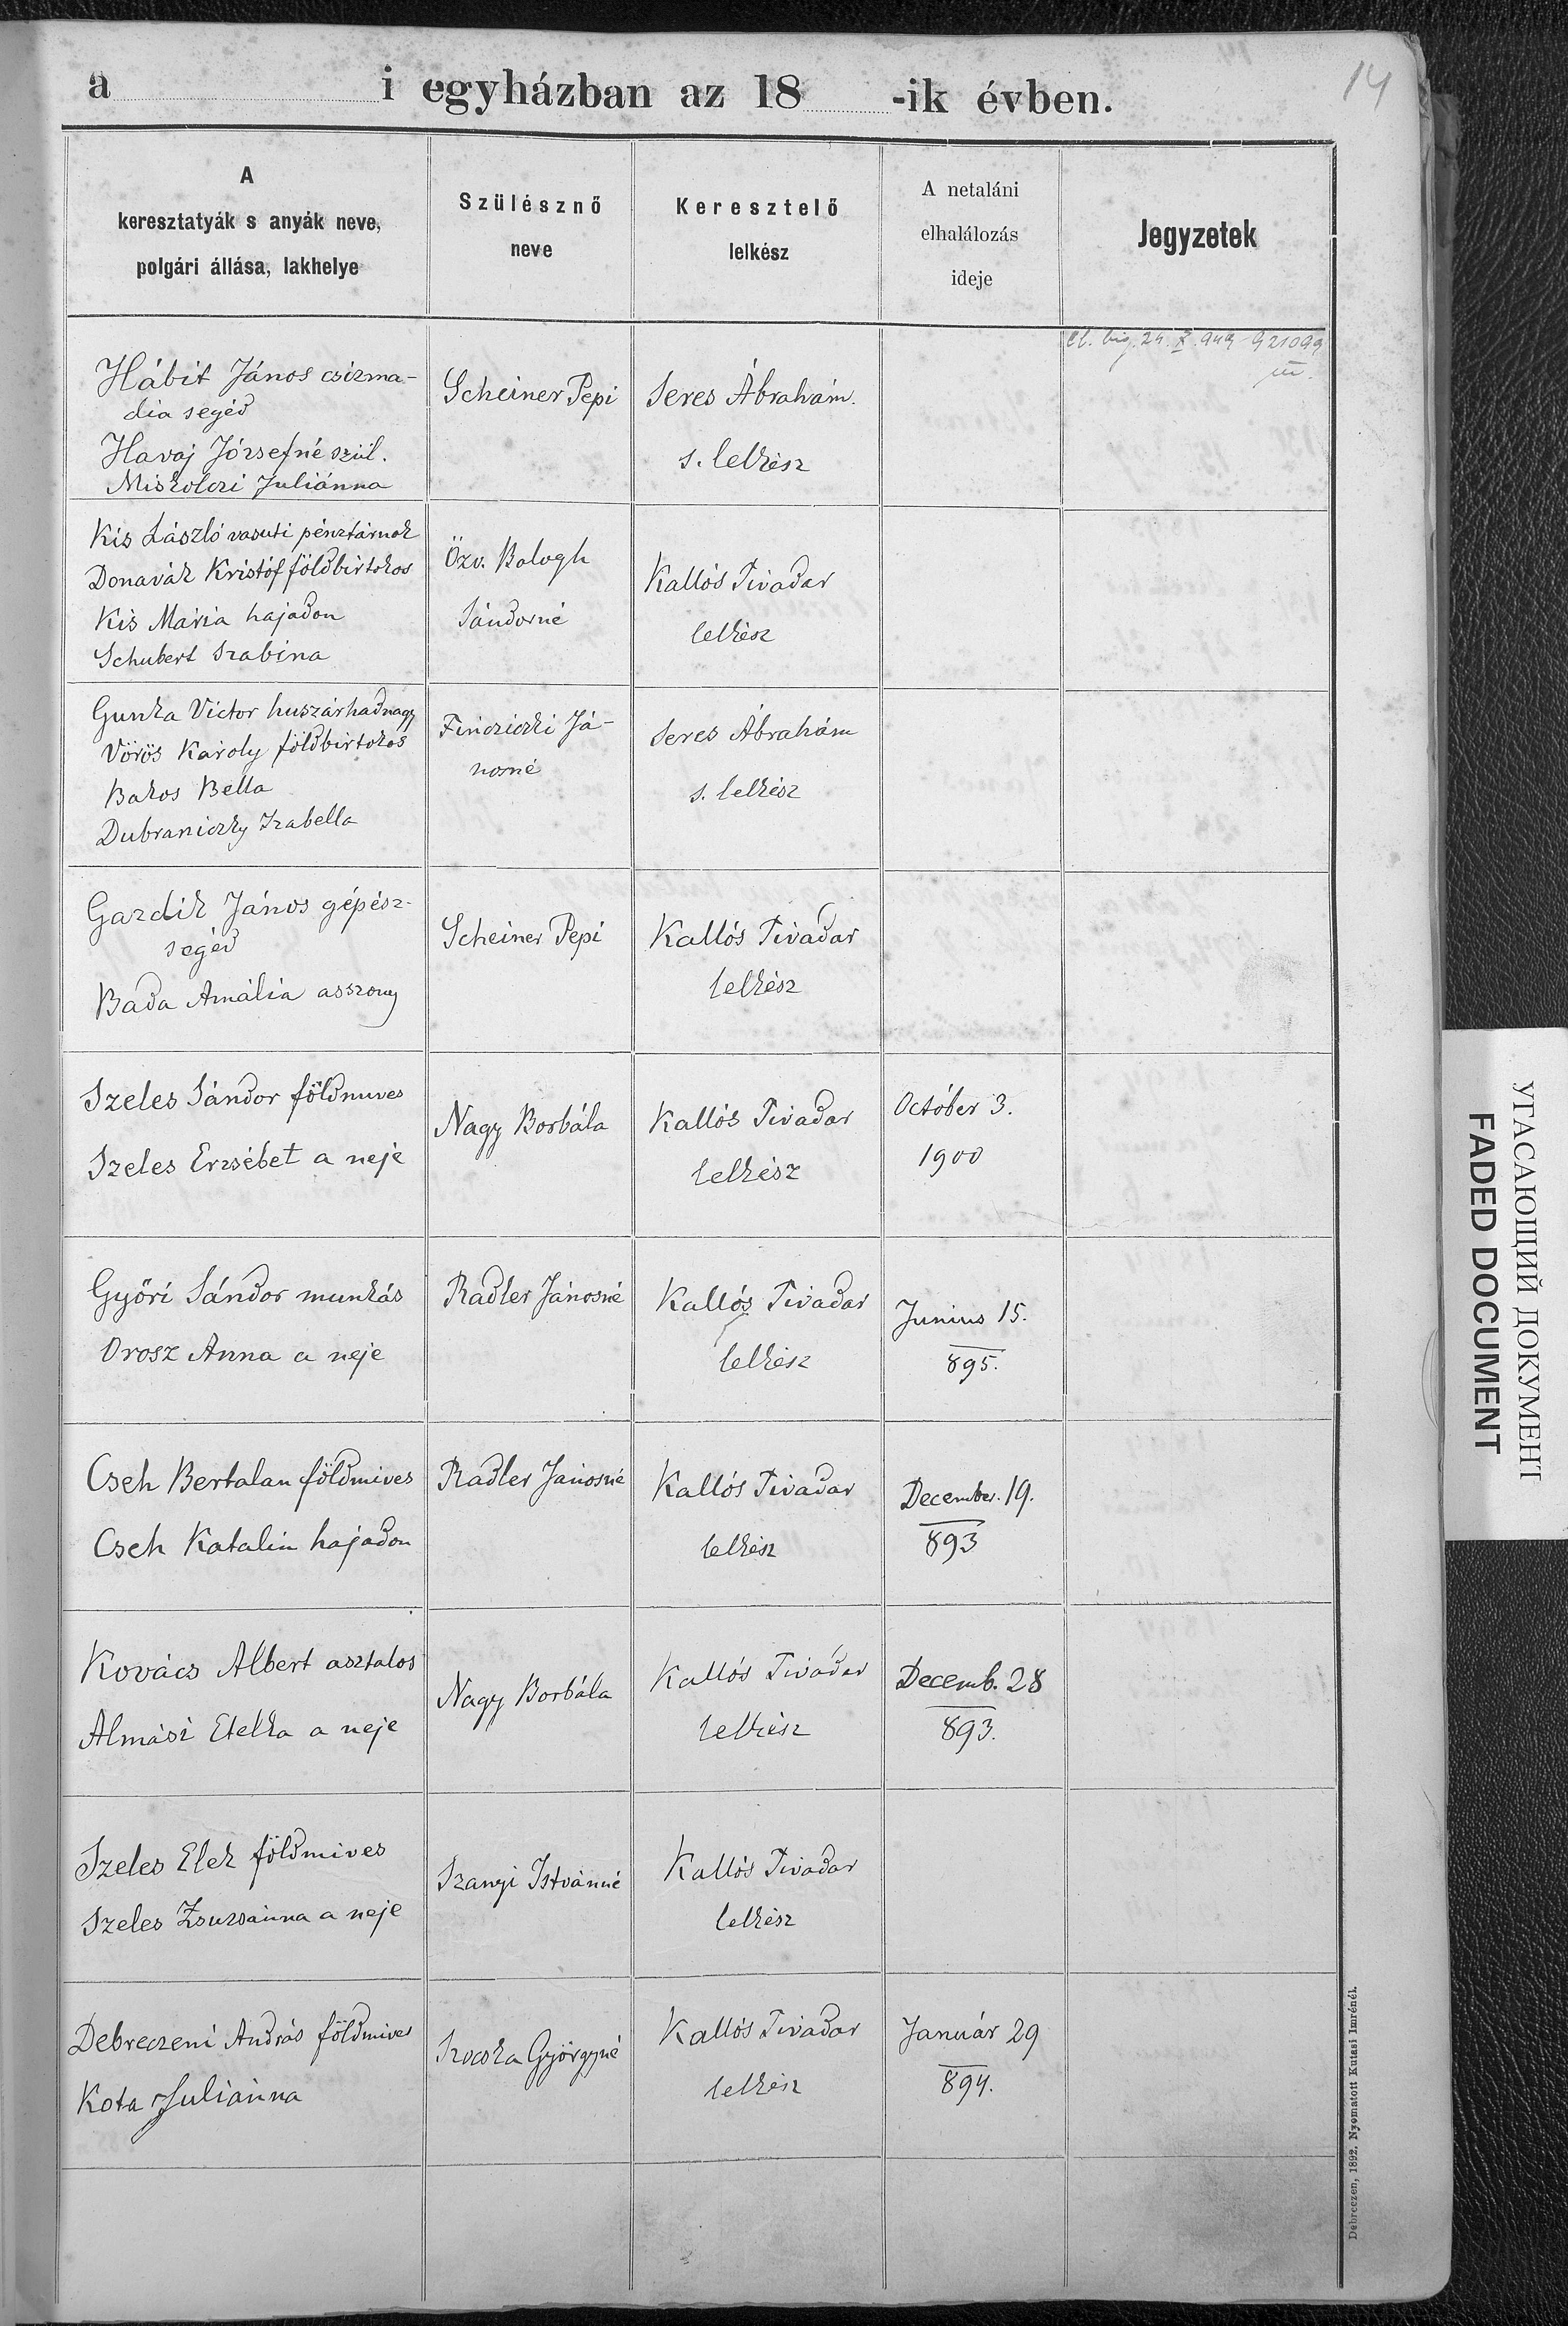 a i egyházban az 18 -ik évben.
14
A
keresztatyák s anyák neve,
polgári állása, lakhelye
Szülésznő
neve
Keresztelő
lelkész
A netaláni
elhalálozás
ideje
Jegyzetek
Hábit János csizma-
dia segéd
Havaj Józsefné szül.
Miskolczi Juliánna
Scheiner Pepi
Seres Ábrahám.
s. lelkész
Kis László vasuti pénztárnok
Donavák Kristóf földbirtokos
Kis Mária hajadon
Schubert Szabina
Özv. Balogh
Sándorné
Kallós Tivadar
lelkész
Gunka Victor huszárhadnagy
Vörös Károly földbirtokos
Bakos Bella
Dubraniczky Izabella
Fincziczki Já-
nosné
Seres Ábrahám
s. lelkész
Gazdik János gépész-
segéd
Bada Amália asszony
Scheiner Pepi
Kallós Tivadar
lelkész
Szeles Sándor földmives
Szeles Erzsébet a neje
Nagy Borbála
Kallós Tivadar
lelkész
Octóber 3.
1900
Győri Sándor munkás
Orosz Anna a neje
Radler Jánosné
Kallós Tivadar
lelkész
Junius 15.
895.
Cseh Bertalan földmives
Cseh Katalin hajadon
Radler Jánosné
Kallós Tivadar
lelkész
December. 19.
893
Kovács Albert asztalos
Almási Etelka a neje
Nagy Borbála
Kallós Tivadar
lelkész
Decemb. 28
893.
Szeles Elek földmives
Szeles Zsuzsánna a neje
Szanyi Istvánné
Kallós Tivadar
lelkész
Debreczeni András földmives
Kota Juliánna
Szocska Györgyné
Kallós Tivadar
lelkész
Január 29
894.
Debreczen, 1892. Nyomatott Kutasi Imrénél.
УГАСАЮЩИЙ ДОКУМЕНТ
FADED DOCUMENT